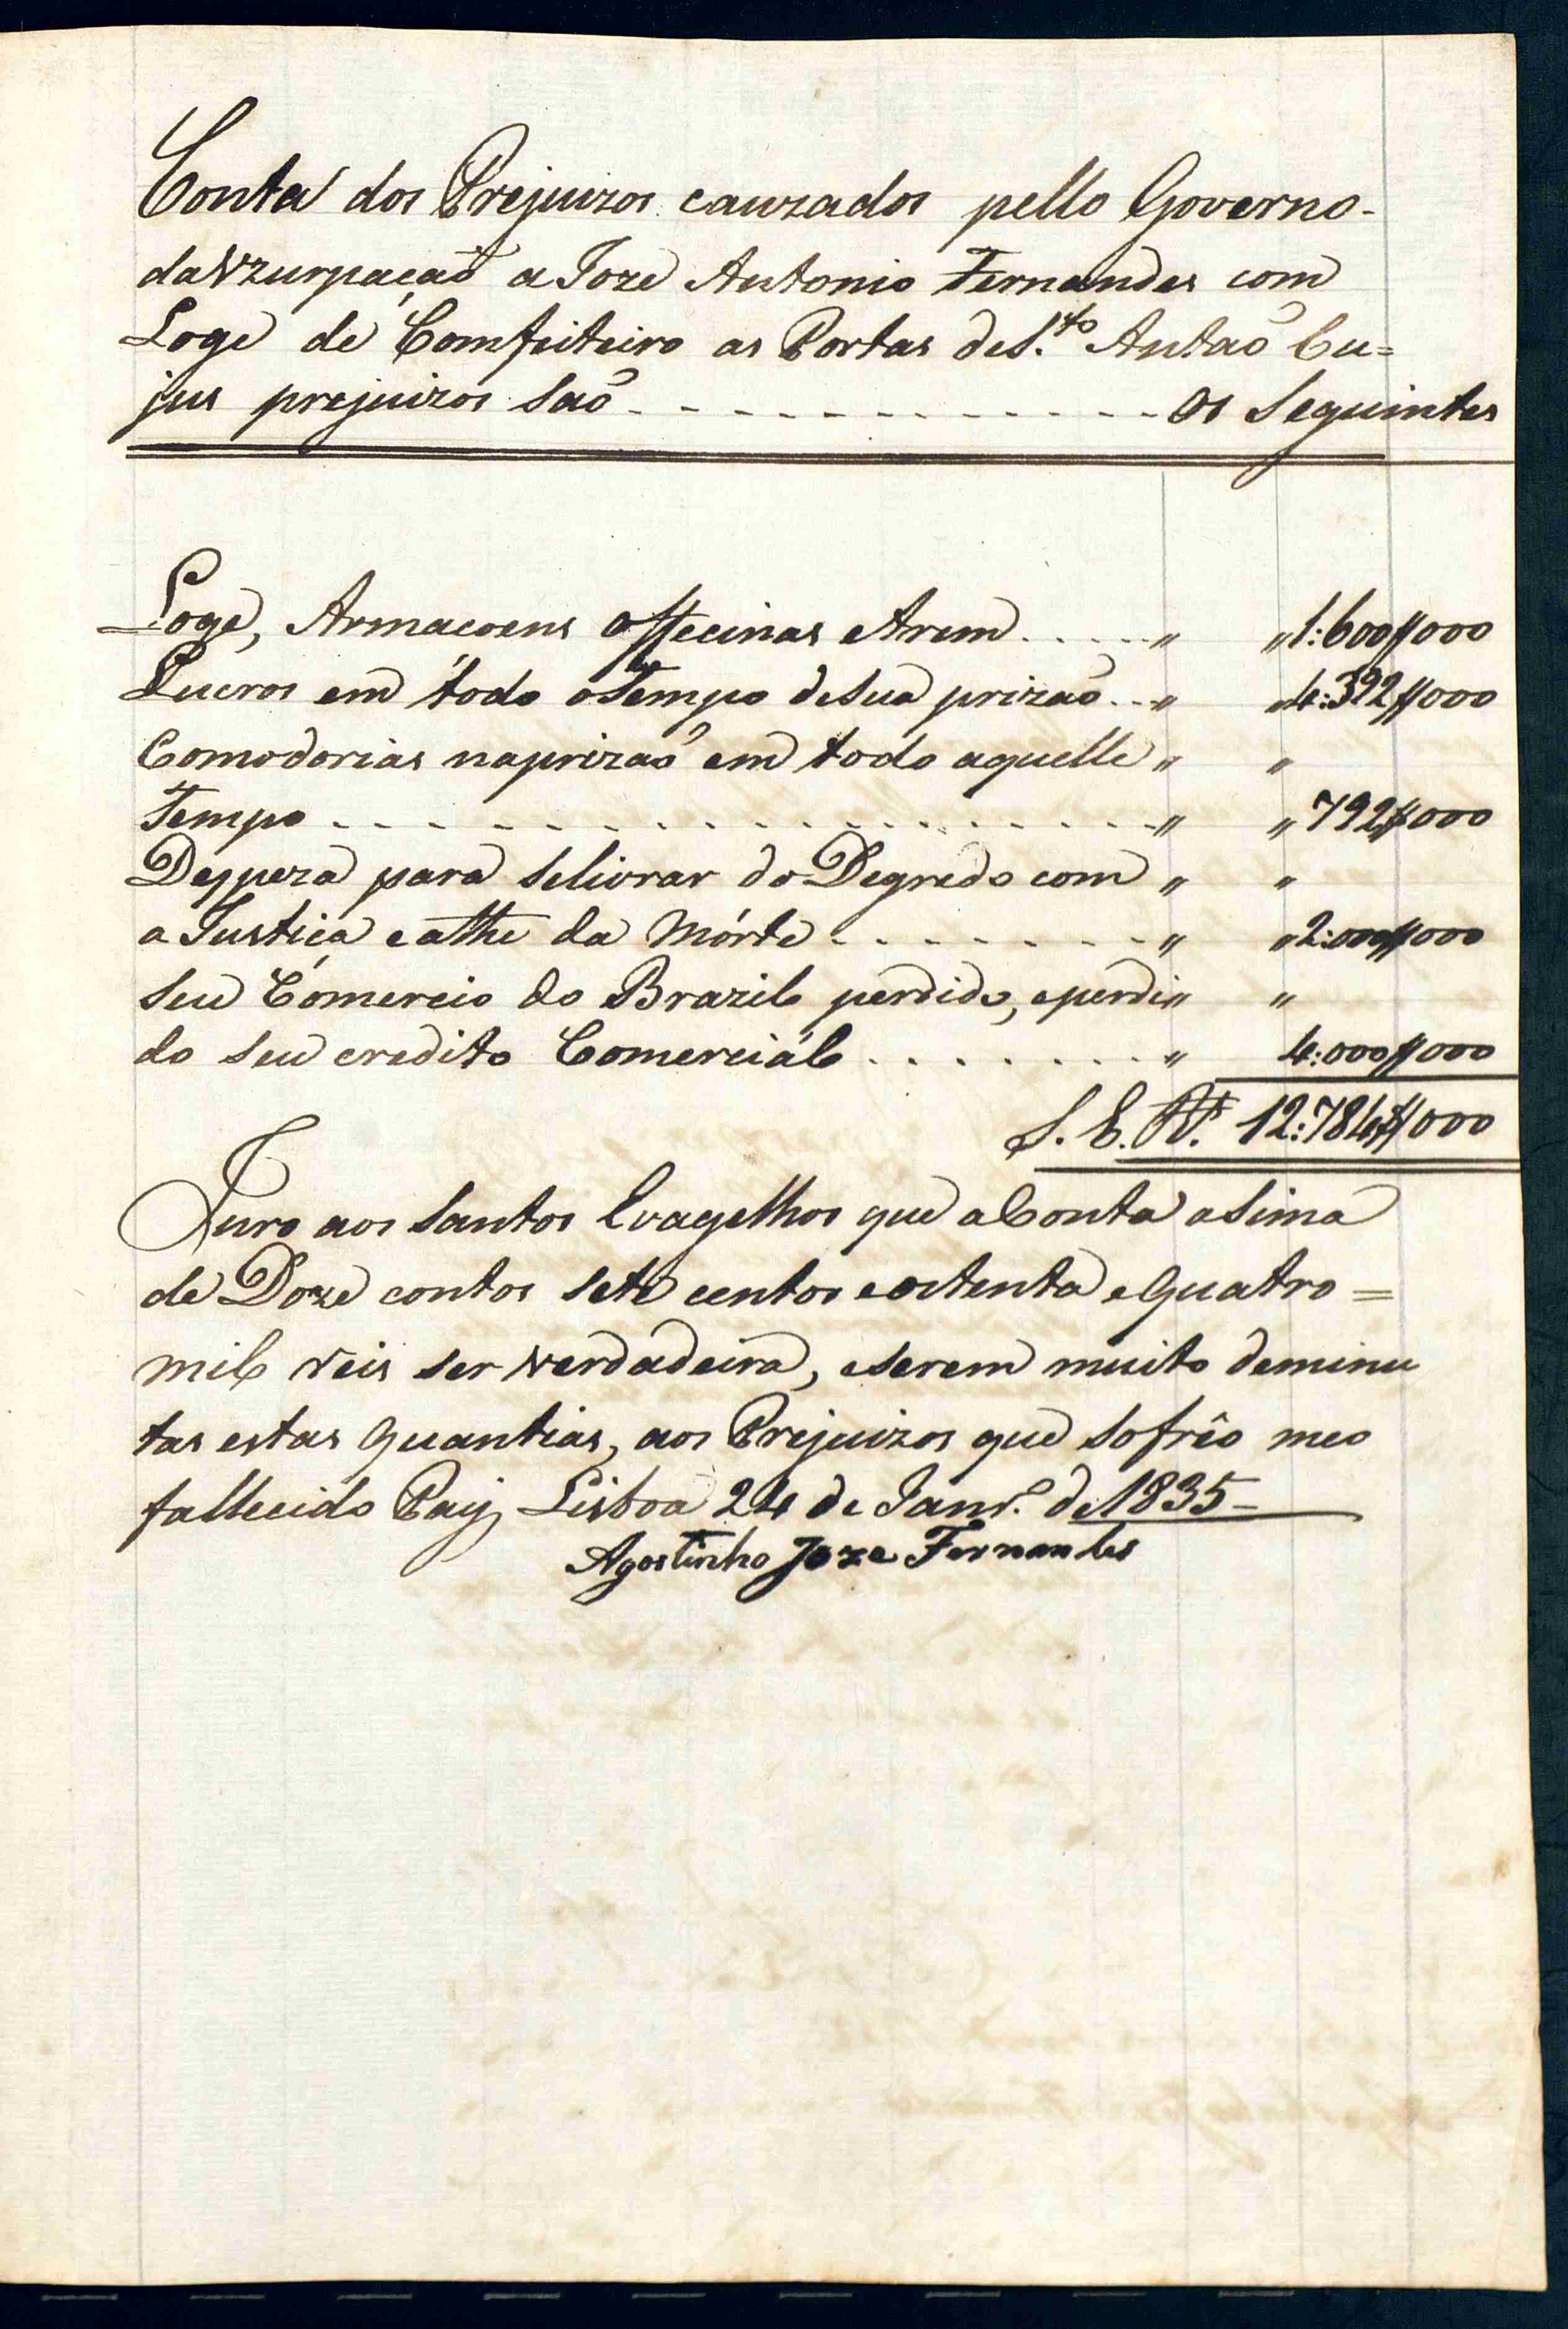 Conta dos Prejuizos cauzados pello Governo-
da Vzurpação a Joze Antonio Fernandes com
Loge de Comfeiteiro as Portas de S.to Antão Cu=
jus prejuizos são - - - - - - - - - - - - - os Seguintes
Loge, Armacoens Offecinas e Arem . . . . . „ „ 1:600$000
Lucros em todo o Tempo de Sua prizão . . „ „ 4:392$000
Comodorias na prizaõ em todo aquelle „ „
Tempo - - - - - - - - - - - - - - - - - - - - „ „ 792$000
Despeza para se livrar do Degredo com „ „
a Justiça e athe da Mórte - - - - - - - - - „ „ 2:000$000
Seu Cómercio do Brazil perdido, e perdi „ „
do seu credito Comerciál . . . . . . . . . „ 4:000$000
S. E. R.s 12:784$000
Juro aos Santos Evagelhos que a Conta a sima
de Doze contos sete centos e oitenta e quatro =
mil reis ser verdadeira, e serem muito deminu
tas estas quantias, aos Prejuizos que sofrêo meo
fallecido Pay, Lisboa 24 de Janr.o de 1835 -
Agostinho Joze Fernandes